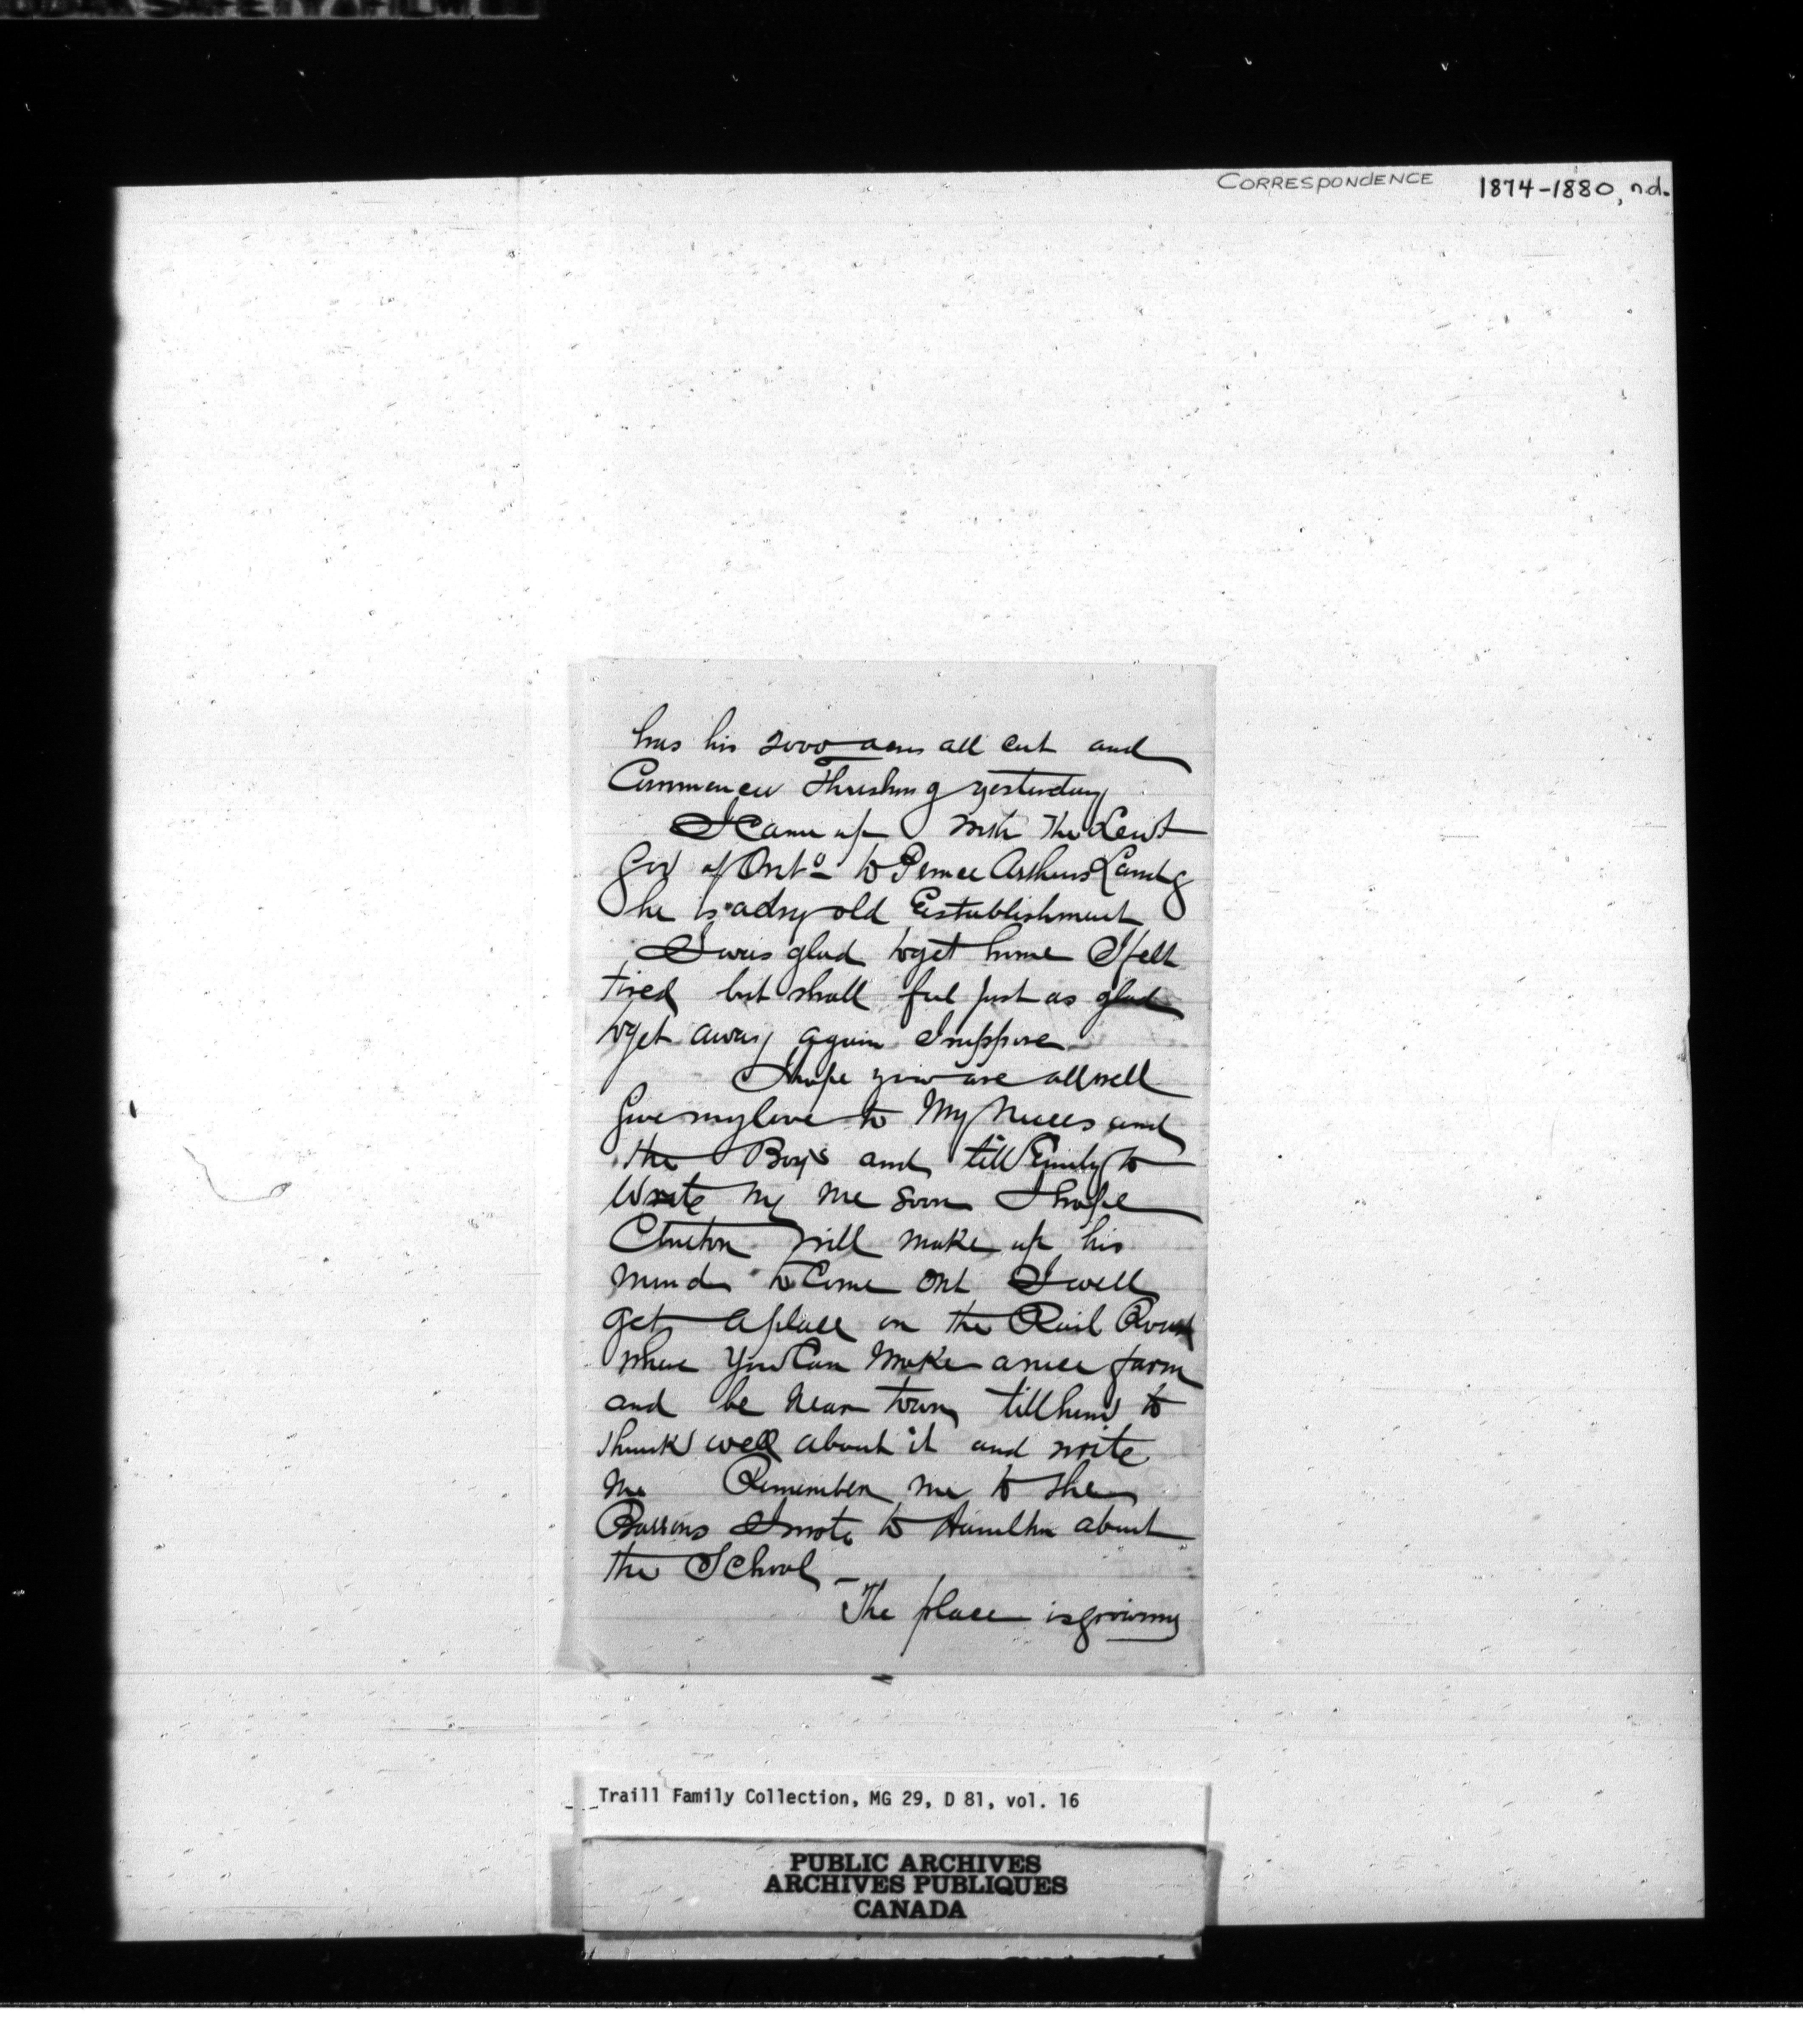 CORRESPONDENCE 1874-1880, n.d.
has his 2000 acres all cut and
Commences Thrashing yesterday
I came up with the Leut
Gov of Onto to Prince Arthurs Landg
he is a dry old Establishment
I was glad to get home I felt
tired but shall feel just as glad
to get away again I suppose
I hope you are all well
Give my love to My Nieces and
the Boys and tell Emily to
Write me soon I hope
Clinton will make up his
mind to Come out I will
get a place on the Rail Road
where You Can Make a nice farm
and be Near town tell him to
think well about it and write
Me Remember me to the
Barrons I wrote to Hamilton about
the School _
The place is growing
Traill Family Collection, MG 29, D 81, vol. 16
PUBLIC ARCHIVES
ARCHIVES PUBLIQUES
CANADA